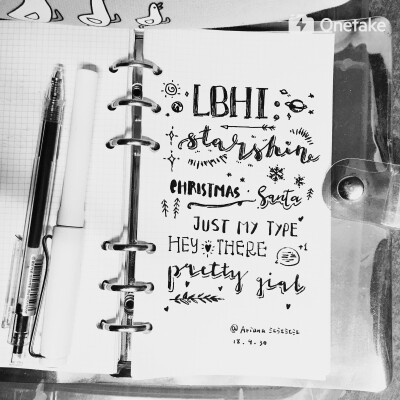 Onetake
LBHI
starshine
CHRISTMAS · Santa
JUST MY TYPE
HEY THERE +1
pretty girl
@Ariana
18.4.30